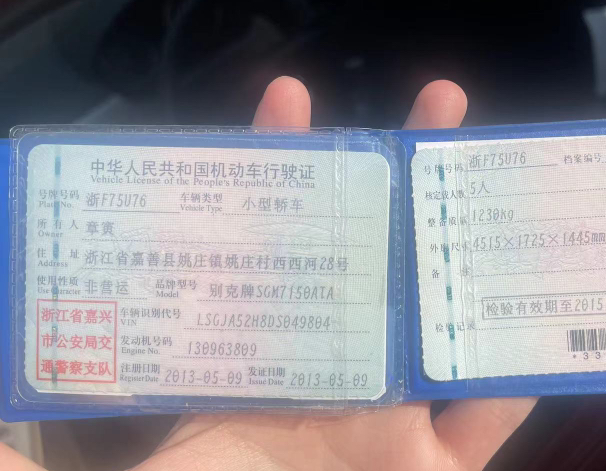 中华人民共和国机动车行驶证
Vehicle License of the People's Republic of China
号牌号码 浙F75U76 车辆类型 小型轿车
Plate No. Vehicle Type
所有人 章寅
Owner
住址 浙江省嘉善县姚庄镇姚庄村西西河28号
Address
使用性质 非营运 品牌型号 别克牌SGM7150ATA
Use Character Model
浙江省嘉兴
市公安局交
通警察支队
车辆识别代号 LSGJA52H8DS049804
VIN
发动机号码 130963809
Engine No.
注册日期 2013-05-09 发证日期 2013-05-09
Register Date Issue Date
号牌号码 浙F75U76 档案编号
核定载人数 5人
整备质量 1230kg
外廓尺寸 4515×1725×1445mm
备注
检验有效期至2015
检验记录
*33